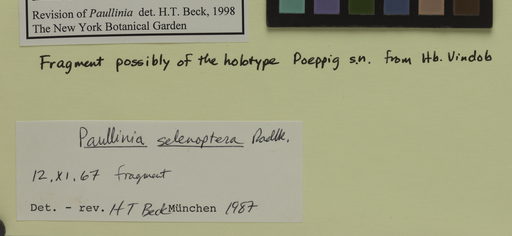 Revision of Paullinia det. H.T. Beck, 1998
The New York Botanical Garden
Fragment possibly of the holotype Poeppig s.n. from Hb. Vindob
Paullinia selenoptera Radlk.
12.XI.67 fragment
Det. - rev. H T Beck München 1987